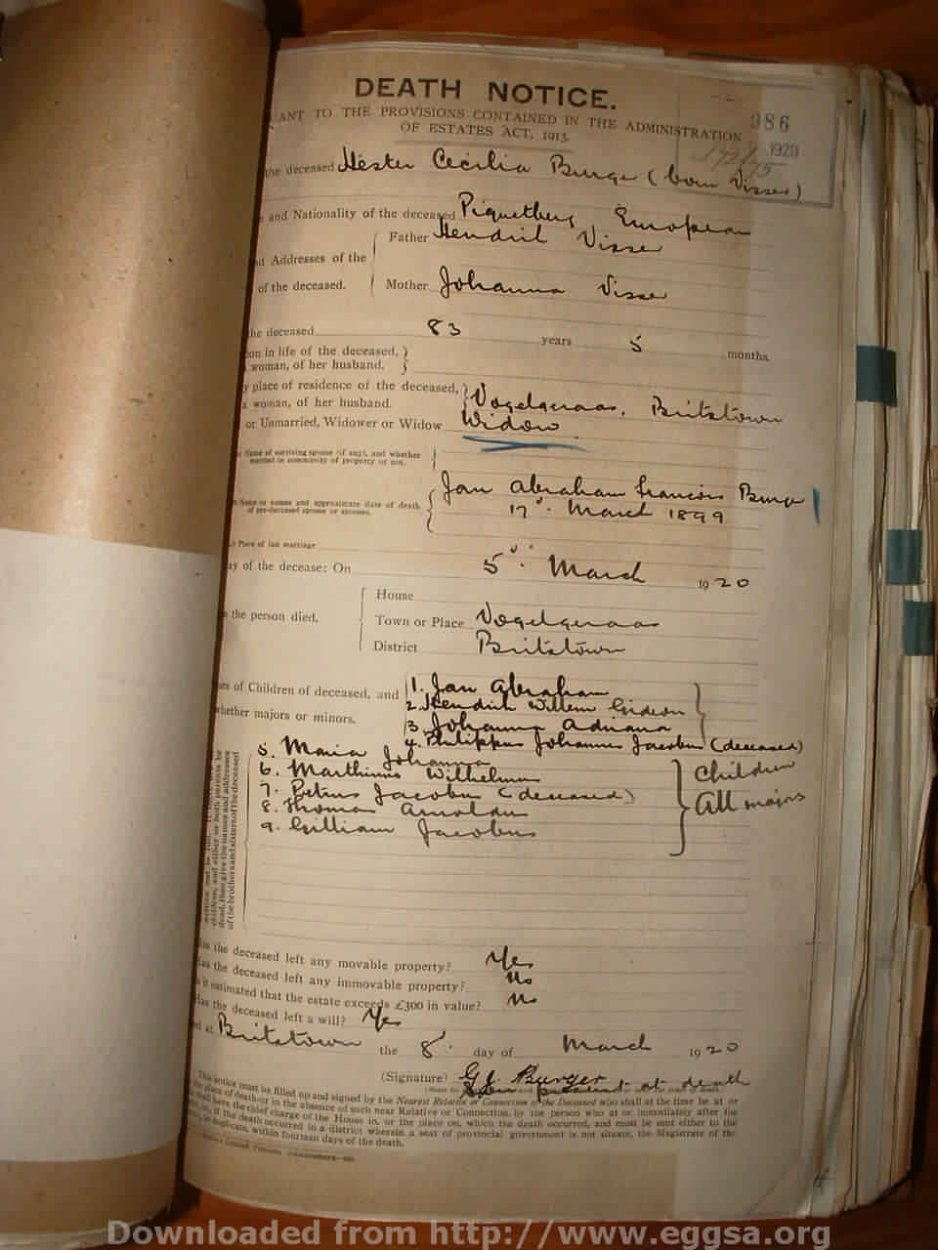 DEATH NOTICE.
ANT TO THE PROVISIONS CONTAINED IN THE ADMINISTRATION
OF ESTATES ACT, 1913.
986
1920
the deceased Hester Cecilia Burger (born Visser)
and Nationality of the deceased Piquetberg European
Father Hendrik Visser
Addresses of the
of the deceased.
Mother Johanna Visser
the deceased 83 years 5 months
on in life of the deceased,
woman, of her husband.
y place of residence of the deceased,
a woman, of her husband. Vogelgeraas, Britstown
or Unmarried, Widower or Widow Widow
Name of surviving spouse (if any), and whether
married in community of property or not.
Name or names and approximate date of death
of pre-deceased spouse or spouses.
Jan Abraham Francois Burger
17th March 1899
Place of last marriage
ay of the decease: On 5th March 1920
House
the person died. Town or Place Vogelgeraas
District Britstown
es of Children of deceased, and
whether majors or minors.
1. Jan Abraham
2. Hendrik Willem Gideon
3. Johanna Adriana
4. Philippus Johannes Jacobus (deceased)
5. Maria Johanna
6. Marthinus Wilhelmus
7. Petrus Jacobus (deceased)
8. Thomas Arnoldus
9. Gilliam Jacobus
Children
All majors
children, and either or both parents be
dead, then give the names and addresses
of the brothers and sisters of the deceased
Has the deceased left any movable property? Yes
Has the deceased left any immovable property? No
Is it estimated that the estate exceeds £300 in value? No
Has the deceased left a will? Yes
ed at Britstown the 8th day of March 1920
(Signature) G J Burger
Son present at death
This notice must be filled up and signed by the Nearest Relative or Connection of the Deceased who shall at the time be at or
the place of death or in the absence of such near Relative or Connection, by the person who at or immediately after the
shall have the chief charge of the House in, or the place on, which the death occurred, and must be sent either to the
or, if the death occurred in a district wherein a seat of provincial government is not situate, the Magistrate of the
in duplicate, within fourteen days of the death.
Downloaded from http://www.eggsa.org